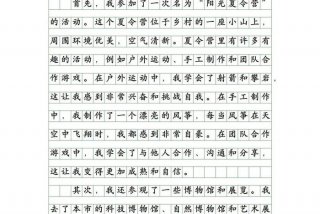 首先，我参加了一次名为“阳光夏令营”
的活动。这个夏令营位于乡村的一座小山上，
周围环境优美，空气清新。夏令营里有许多有
趣的活动，例如户外运动、手工制作和团队合
作游戏。在户外运动中，我学会了射箭和攀岩，
这让我感到非常兴奋和挑战自我。在手工制作
中，我制作了一个漂亮的风筝，每当风筝在天
空中飞翔时，我都感到非常自豪。在团队合作
游戏中，我学会了与他人合作、沟通和分享，
这让我变得更加成熟和自信。
其次，我还参观了一些博物馆和展览。我
去了本市的科技博物馆、自然博物馆和艺术展